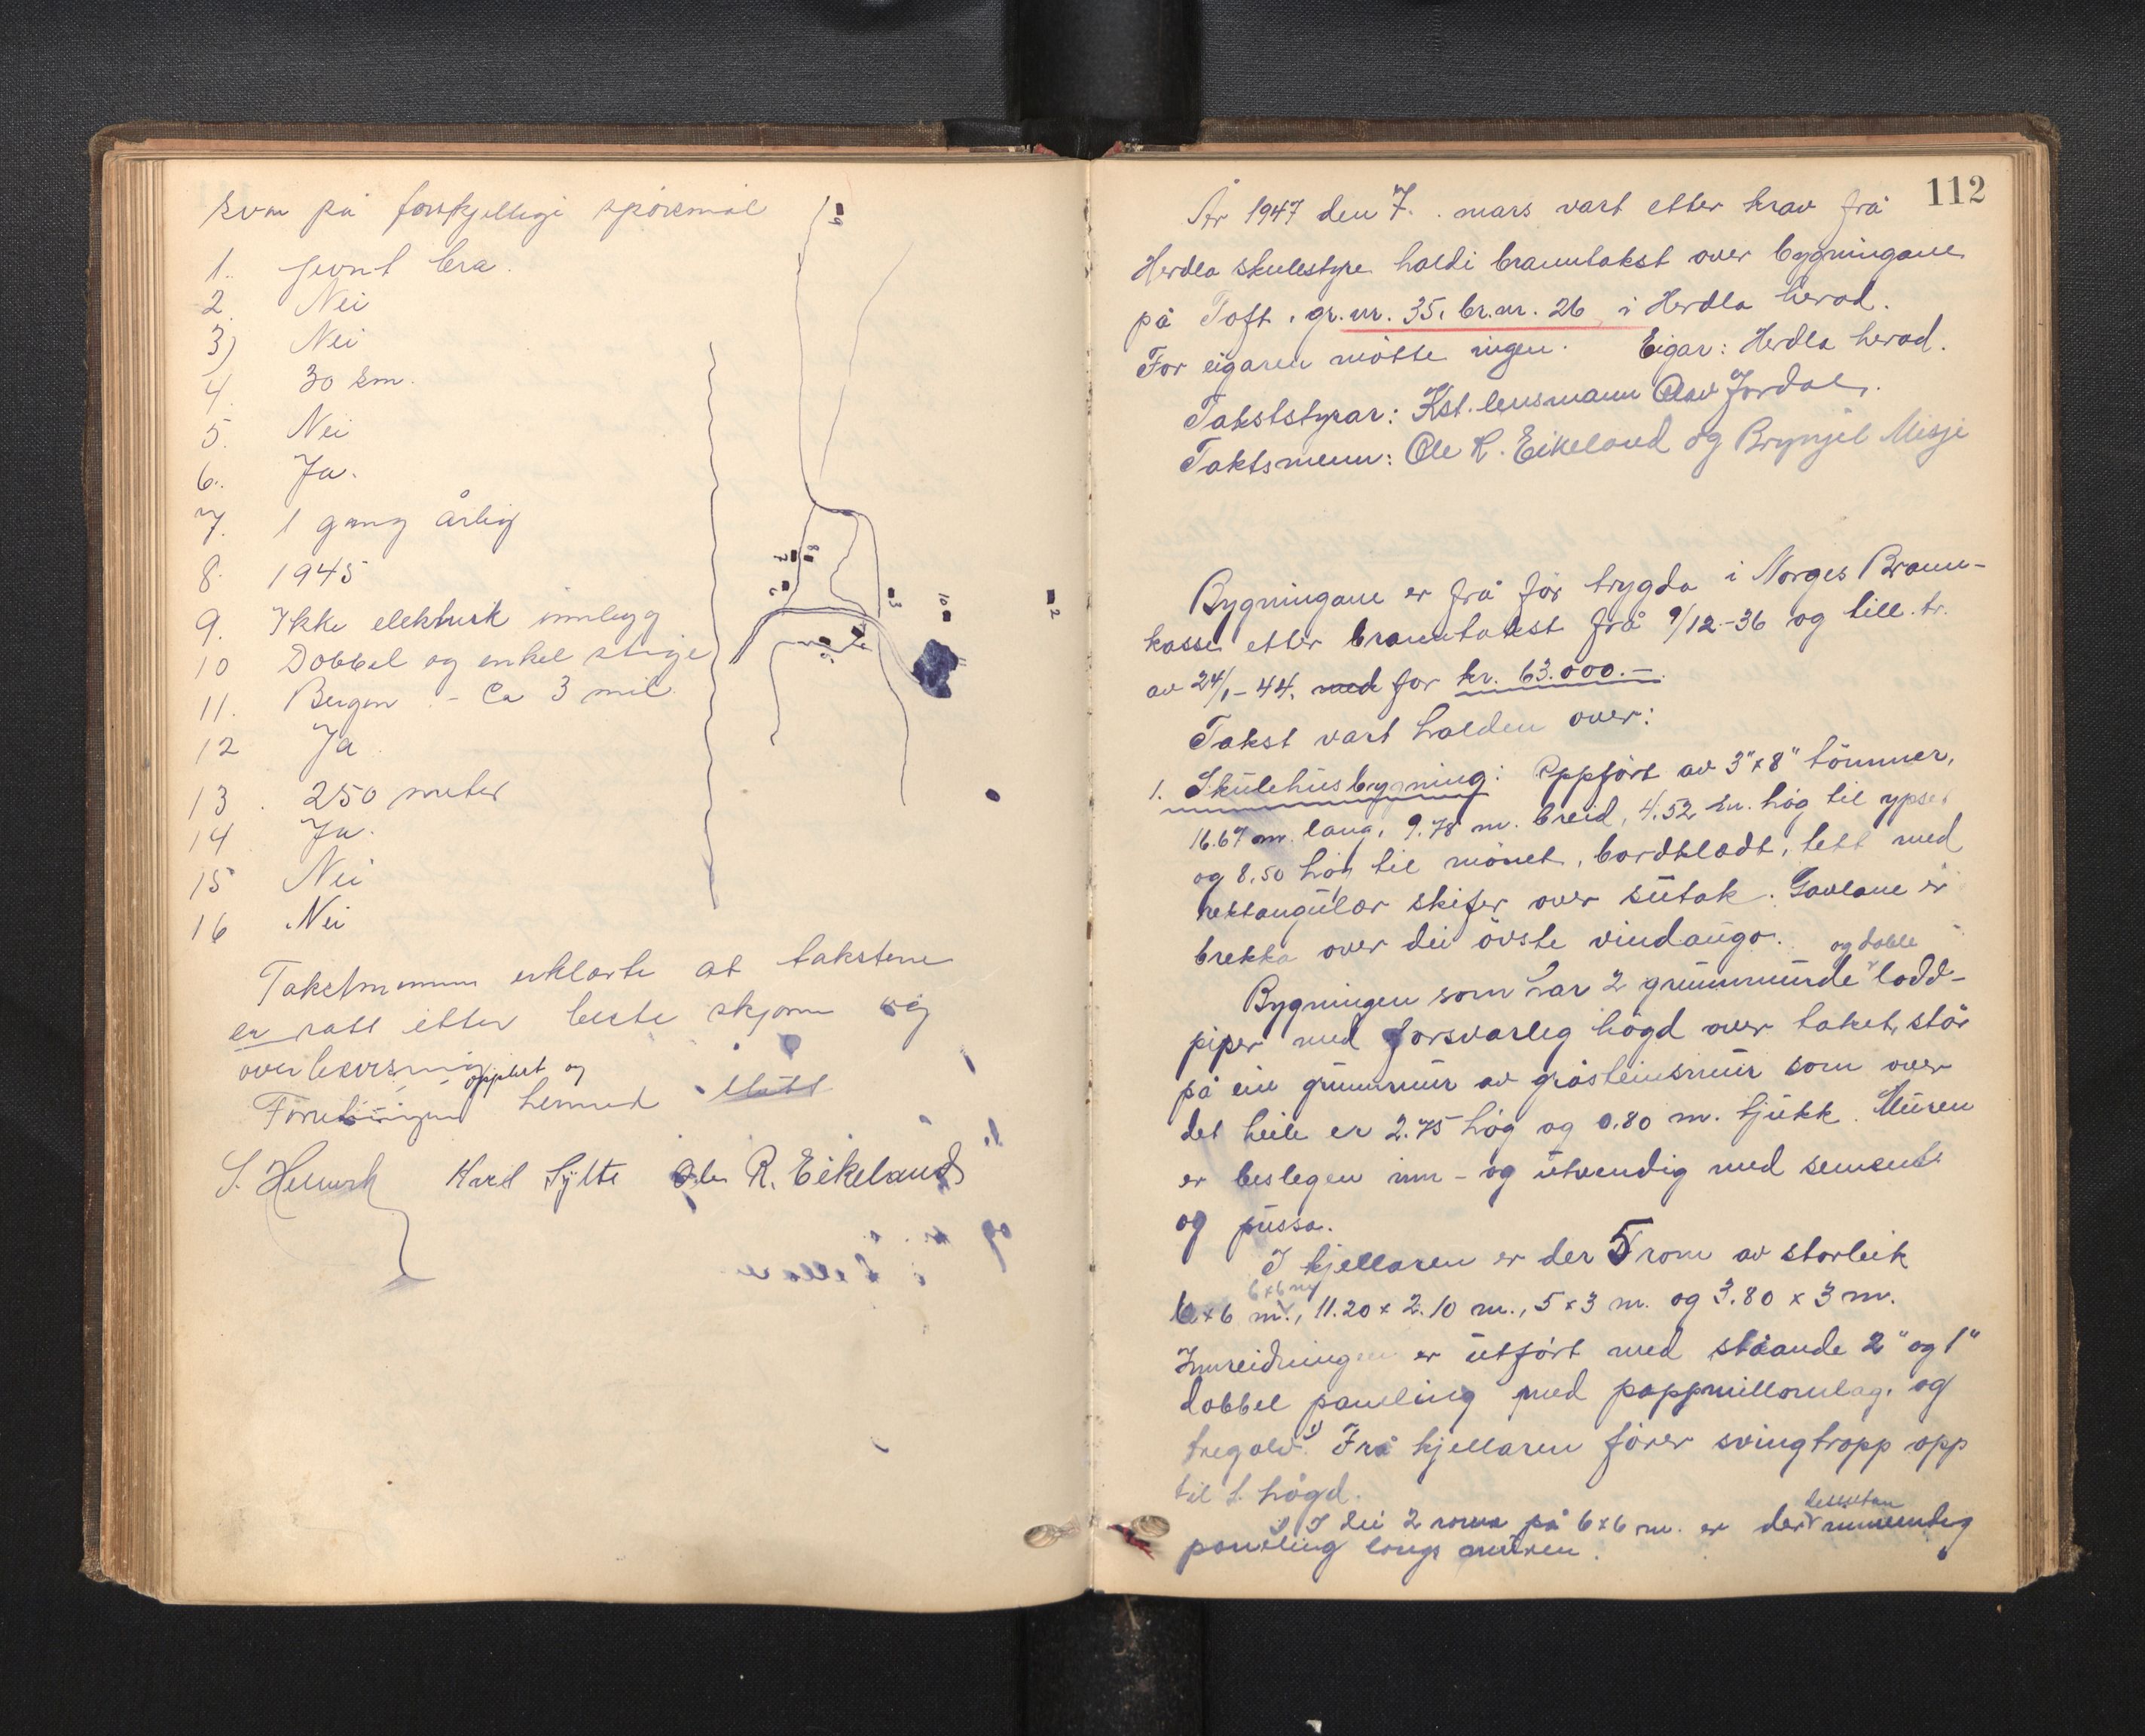 Svar på forskjellige spörsmål
1. jevnt bra.
2. Nei
3) Nei
4. 30 km.
5. Nei
6. Ja.
7. 1 gang årlig
8. 1945
9. Ikke elektrisk innlegg
10 Dobbel og enkel stige
11. Bergen - Ca 3 mil.
12 Ja
13. 250 meter
14 Ja.
15 Nei
16 Nei
Takstmennene erklærte at takstene
er satt etter beste skjönn og
overbevisning
opplest og
Forretningen hermed slutt
S. Karl Sylte Ole R. Eikeland
9
7
8
6
3
10
2
5
11
112
År 1947 den 7. mars vart etter krav frå
Herdla skulestyre haldi branntakst over bygningane
på Toft, gr.nr. 35, br.nr. 26, i Herdla herad.
For eigaren mötte ingen. Eigar: Herdla herad.
Takststyrar: Kst. lensmann Olav Jordal,
Taktsmenn: Ole R. Eikeland og Brynjel Misje
Bygningane er frå för trygda i Norges Brann-
kasse etter branntakst frå 9/12-36 og till.tr.
av 24/1-44. med for kr. 63.000.-
Takst vart halden over:
1. Skulehusbygning: Oppfört av 3"x8" tömmer,
16.67 m. lang, 9.78 m. breid, 4.52 m. hög til ypse,
og 8.50 hög til mönet, bordkledt, tett med
rektangulær skifer over sutak. Gavlane er
brekka over dei övste vindaugo.
og doble
Bygningen som har 2 grunnmurde lodd-
piper med forsvarleg högd over taket, står
på ein grunnmur av gråsteinsmur som over
det heile er 2.75 hög og 0.80 m. tjukk. Muren
er beslegen inn- og utvendig med sement
og pussa.
I kjellaren er der 5 rom av storleik
6x6 m
6x6 m., 11.20 x 2.10 m., 5x3 m. og 3.80 x 3 m.
Innreidningen er utfört med ståande 2" og 1"
dobbel paneling med pappmillomlag, og
tregolv. 1) Frå kjellaren förer svingtropp opp
til 1. högd.
dessutan
1) I dei 2 romma på 6x6 m. er der innvendig
paneling langs muren.